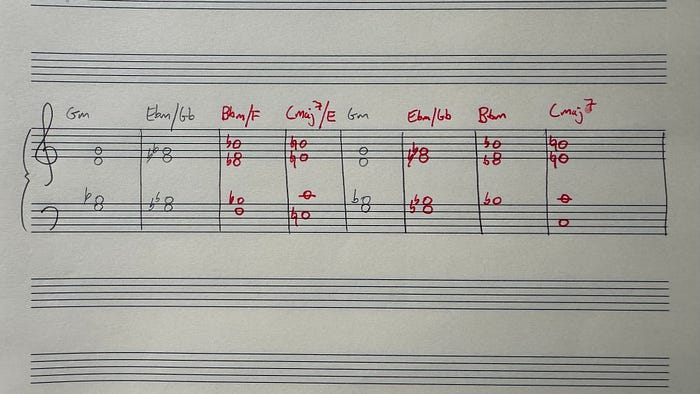 Gm Ebm/Gb Bbm/F Cmaj7/E Gm Ebm/Gb Bbm Cmaj7